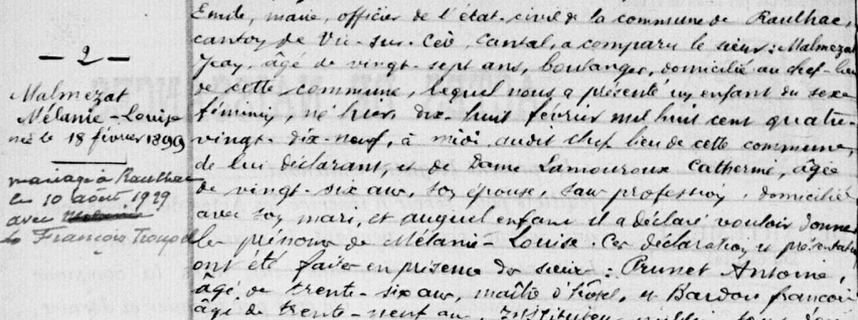 — 2 —
Malmezat
Mélanie-Louise
née le 18 février 1899
mariage à Raulhac
le 10 août 1929
avec
François
Emile, maire, officier de l'état-civil de la commune de Raulhac,
canton de Vic-sur-Cère, Cantal, a comparu le sieur: Malmezat
Jean, âgé de vingt-sept ans, boulanger, domicilié au chef-lieu
de cette commune, lequel nous a présenté un enfant du sexe
féminin, né hier dix-huit février mil huit cent quatre-
vingt-dix-neuf, à midi, audit chef lieu de cette commune,
de lui déclarant, et de Dame Lamouroux Catherine, âgée
de vingt-six ans, son épouse, sans profession, domiciliée
avec son mari, et auquel enfant il a déclaré vouloir donner
les prénoms de Mélanie-Louise. Ces déclaration et présentation
ont été faites en présence des sieurs: Prunet Antoine,
âgé de trente-six ans, maître d'hôtel, et Bardou françois
âgé de trente-neuf ans, Instituteur public